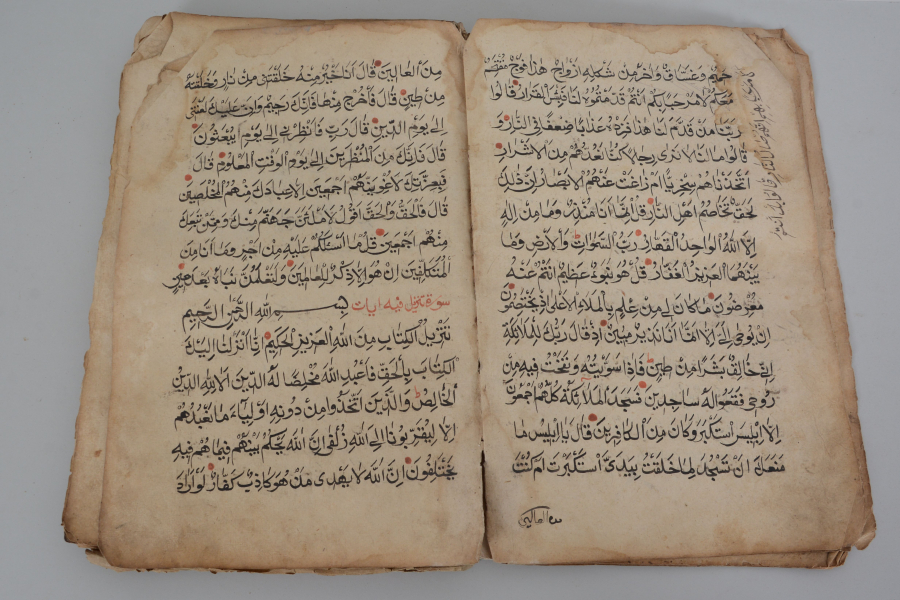 حميم وغساق وآخر من شكله ازواج هذا فوج مقتحم
معكم لا مرحبا بكم انتم قدمتموه لنا فبئس القرار قالوا
ربنا من قدم لنا هذا فزده عذابا ضعفا في النار و
قالوا ما لنا لا نرى رجالا كنا نعدهم من الاشرار
اتخذناهم سخريا ام زاغت عنهم الابصار ان ذلك
لحق تخاصم اهل النار قل انما انا منذر وما من اله
الا الله الواحد القهار رب السموات والارض وما
بينهما العزيز الغفار قل هو نبوء عظيم انتم عنه
معرضون ما كان لي من علم بالملاء الاعلى اذ يختصمون
ان يوحى الي الا انما انا نذير مبين اذ قال ربك للملائكة
اني خالق بشرا من طين فاذا سويته ونفخت فيه من
روحي فقعوا له ساجدين فسجد الملائكة كلهم اجمعون
الا ابليس استكبر وكان من الكافرين قال يا ابليس ما
منعك ان تسجد لما خلقت بيدي استكبرت ام كنت
من العالين
لا مرحبا بهم انهم صالوا النار قالوا بل انتم
من العالين قال انا خير منه خلقتني من نار وخلقته
من طين قال فاخرج منها فانك رجيم وان عليك لعنتي
الى يوم الدين قال رب فانظرني الى يوم يبعثون
قال فانك من المنظرين الى يوم الوقت المعلوم قال
فبعزتك لاغوينهم اجمعين الا عبادك منهم المخلصين
قال فالحق والحق اقول لاملئن جهنم منك وممن تبعك
منهم اجمعين قل ما اسئلكم عليه من اجر وما انا من
المتكلفين ان هو الا ذكر للعالمين ولتعلمن نباه بعد حين
سورة تنزيل فيه ايات بسم الله الرحمن الرحيم
تنزيل الكتاب من الله العزيز الحكيم انا انزلنا اليك
الكتاب بالحق فاعبد الله مخلصا له الدين الا لله الدين
الخالص والذين اتخذوا من دونه اولياء ما نعبدهم
الا ليقربونا الى الله زلفى ان الله يحكم بينهم فيما هم فيه
يختلفون ان الله لا يهدى من هو كاذب كفار لو اراد